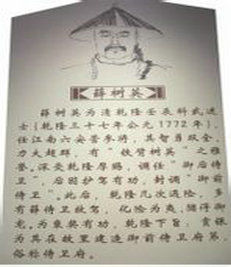 薛树英
薛树英为清乾隆壬辰科武进
士(乾隆三十七年公元1772年),
任江南六安营参将,其智勇双全,
力大超群,有“铁臂树英”之雅
誉,深受乾隆厚赐,调任“御后侍
卫”,后因护驾有功,封调“御前
侍卫”。此后,乾隆几次遇险,多
有薛侍卫救驾,化险为夷,随浮御
宪,为表奖有功,乾隆下旨,责保
为其在故里建造御前侍卫府第,
俗称侍卫府。